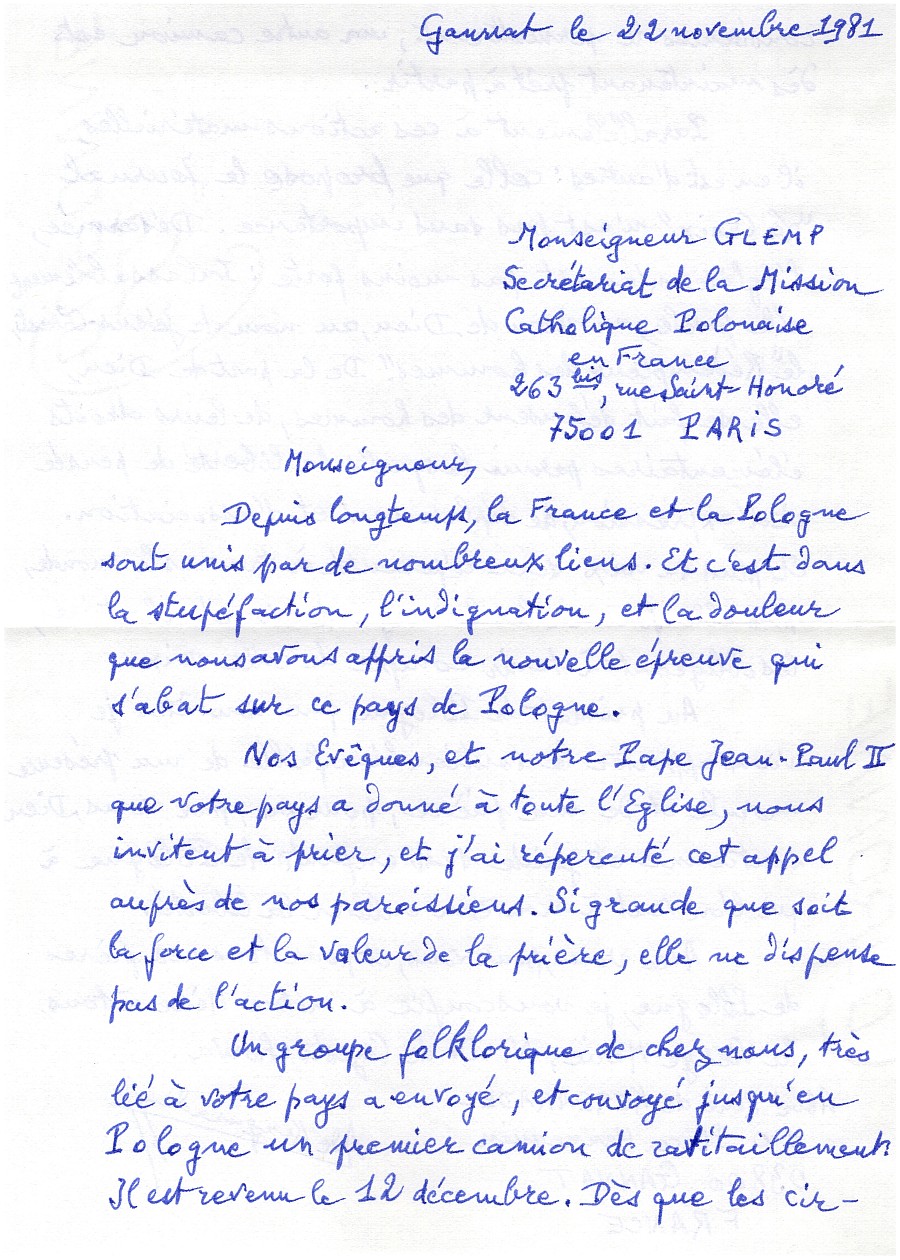 Gannat le 22 novembre 1981
Monseigneur GLEMP
Secrétariat de la Mission
Catholique Polonaise
en France
263 bis, rue Saint-Honoré
75001 PARIS
Monseigneur,
Depuis longtemps, la France et la Pologne
sont unis par de nombreux liens. Et c'est dans
la stupéfaction, l'indignation, et la douleur
que nous avons appris la nouvelle épreuve qui
s'abat sur ce pays de Pologne.
Nos Evêques, et notre Pape Jean-Paul II
que votre pays a donné à toute l'Eglise, nous
invitent à prier, et j'ai répercuté cet appel
auprès de nos paroissiens. Si grande que soit
la force et la valeur de la prière, elle ne dispense
pas de l'action.
Un groupe folklorique de chez nous, très
lié à votre pays a envoyé, et convoyé jusqu'en
Pologne un premier camion de ravitaillement.
Il est revenu le 12 décembre. Dès que les cir-